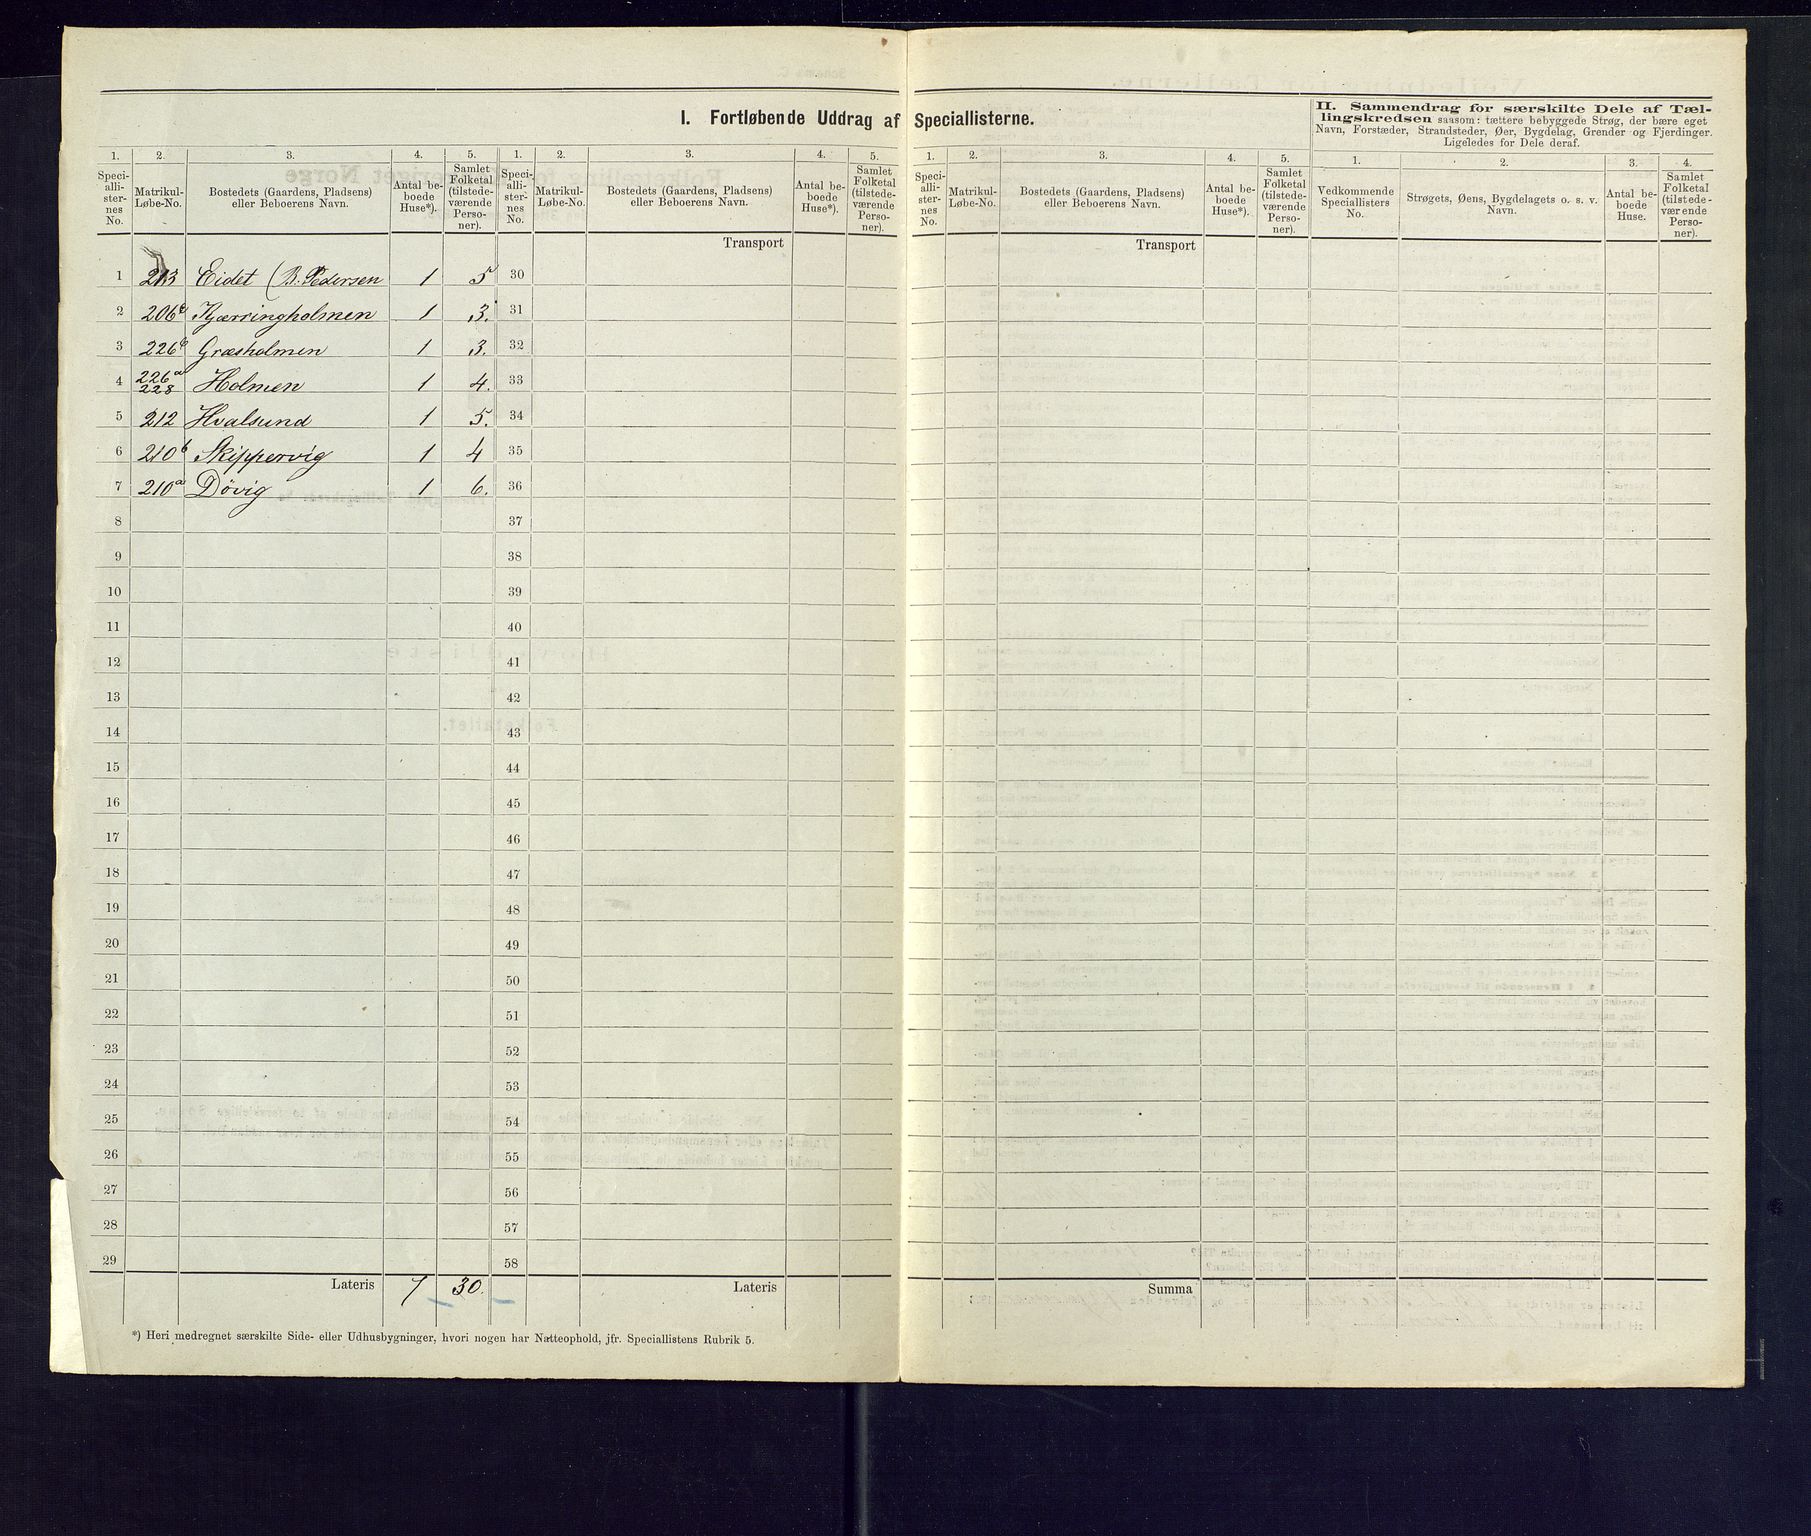 I. Fortløbende Uddrag af Speciallisterne.
II. Sammendrag for særskilte Dele af Tæl-
lingskredsen saasom: tættere bebyggede Strøg, der bære eget
Navn, Forstæder, Strandsteder, Øer, Bygdelag, Grender og Fjerdinger.
Ligeledes for Dele deraf.
1. 2. 3. 4. 5. 1. 2. 3. 4. 5. 1. 2. 3. 4. 5. 1. 2. 3. 4.
Speci-
alli-
ster-
nes
No.
Matrikul-
Løbe-No.
Bostedets (Gaardens, Pladsens)
eller Beboerens Navn.
Antal be-
boede
Huse*).
Samlet
Folketal
(tilstede-
værende
Perso-
ner).
Speci-
alli-
ster-
nes
No.
Matrikul-
Løbe-No.
Bostedets (Gaardens, Pladsens)
eller Beboerens Navn.
Antal be-
boede
Huse*).
Samlet
Folketal
(tilstede-
værende
Perso-
ner).
Speci-
alli-
ster-
nes
No.
Matrikul-
Løbe-No.
Bostedets (Gaardens, Pladsens)
eller Beboerens Navn.
Antal be-
boede
Huse*).
Samlet
Folketal
(tilstede-
værende
Perso-
ner).
Vedkommende
Speciallisters
No.
Strøgets, Øens, Bygdelagets o. s. v.
Navn.
Antal be-
boede
Huse.
Samlet
Folketal
(tilstede-
værende
Perso-
ner).
Transport Transport
1 213 Eidet (B. Pedersen 1 5 30
2 206e Kjærringholmen 1 3. 31
3 226 Græsholmen 1 3. 32
4 226a 228 Holmen 1 4. 33
5 212 Hvalsund 1 5. 34
6 210b Skippervig 1 4 35
7 210a Dövig 1 6. 36
8 37
9 38
10 39
11 40
12 41
13 42
14 43
15 44
16 45
17 46
18 47
19 48
20 49
21 50
22 51
23 52
24 53
25 54
26 55
27 56
28 57
29 58
Lateris 7 30. Lateris Summa
*) Heri medregnet særskilte Side- eller Udhusbygninger, hvori nogen har Natteophold, jfr. Speciallistens Rubrik 5.